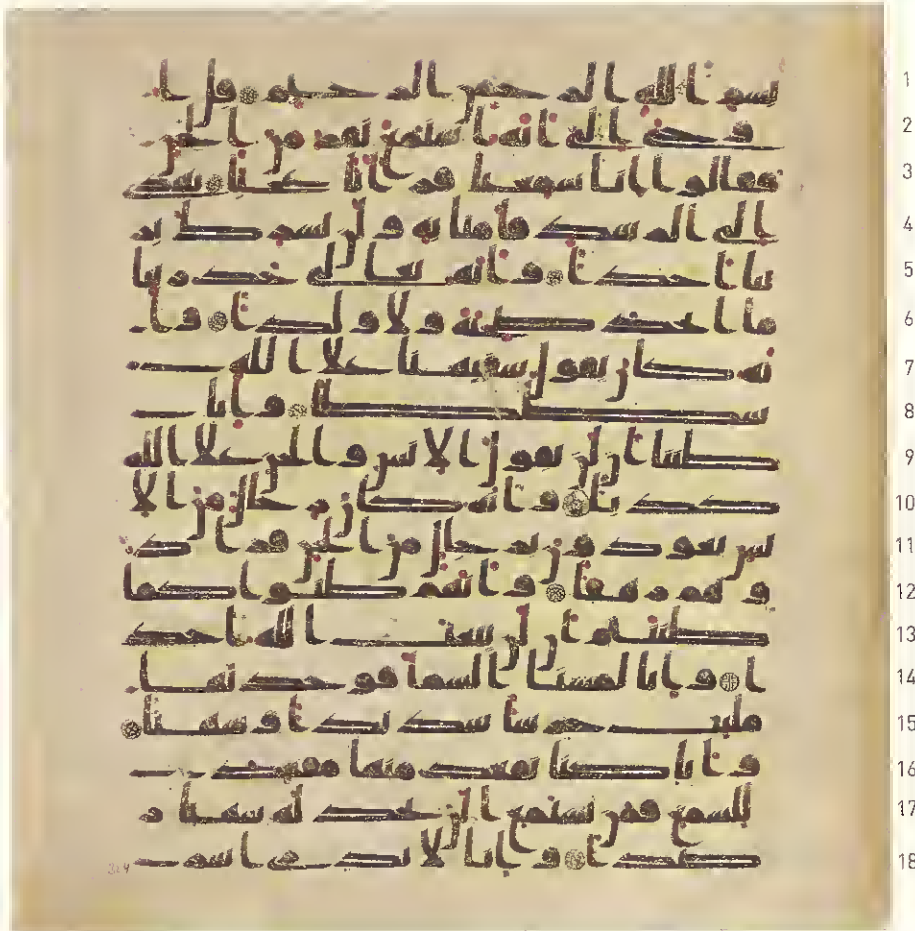 بسم الله الرحمن الرحيم قل ا 1
وحي الي انه استمع نفر من الجن 2
فقالوا انا سمعنا قرانا عجبا يهد 3
ي الي الرشد فامنا به ولن نشرك بر 4
بنا احدا وانه تعلي جد ربنا 5
ما اتخذ صحبة ولا ولدا وا 6
نه كان يقول سفيهنا علا الله 7
شططا وانا 8
ظننا ان لن تقول الانس والجن علا الله 9
كذبا وانه كان رجال من الا 10
نس يعوذون برجال من الجن فزاد 11
وهم رهقا وانهم ظنوا كما 12
ظننتم ان لن يبعث الله احد 13
ا وانا لمسنا السما فوجدنها 14
ملئت حرسا شديدا وشهبا 15
وانا كنا نقعد منها مقعد 16
للسمع فمن يستمع الان يجد له شهبا ر 17
صدا وانا لا ندري اشر 18